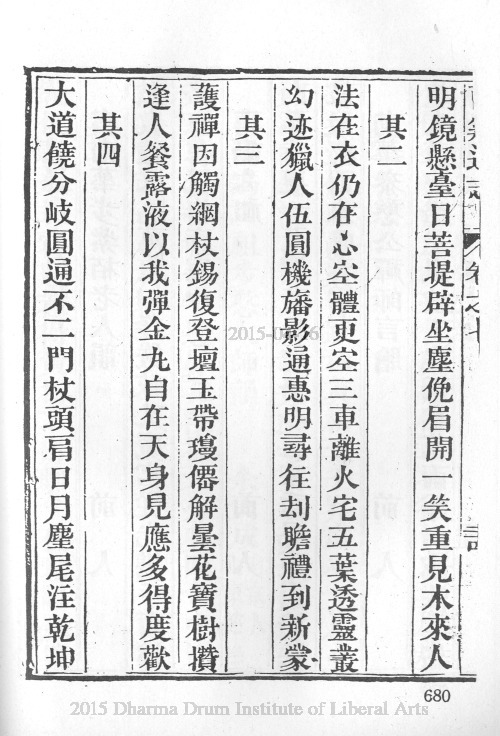 明鏡懸臺日菩提辟坐塵俛眉開 笑重見本來人
其二
法在衣仍在心空體更空三車離火宅五葉透靈叢
幻迹獵人伍圓機旛影通惠明尋往刦瞻禮到新蒙
其三
護禪因觸網杖錫復登壇玉帶瓊僊解曇花寶樹攢
逢人餐露液以我彈金丸自在天身見應多得度歡
其四
大道饒分岐圓通不二門杖頭肩日月塵尾汪乾坤
680
2015 Dharma Drum Institute of Liberal Arts